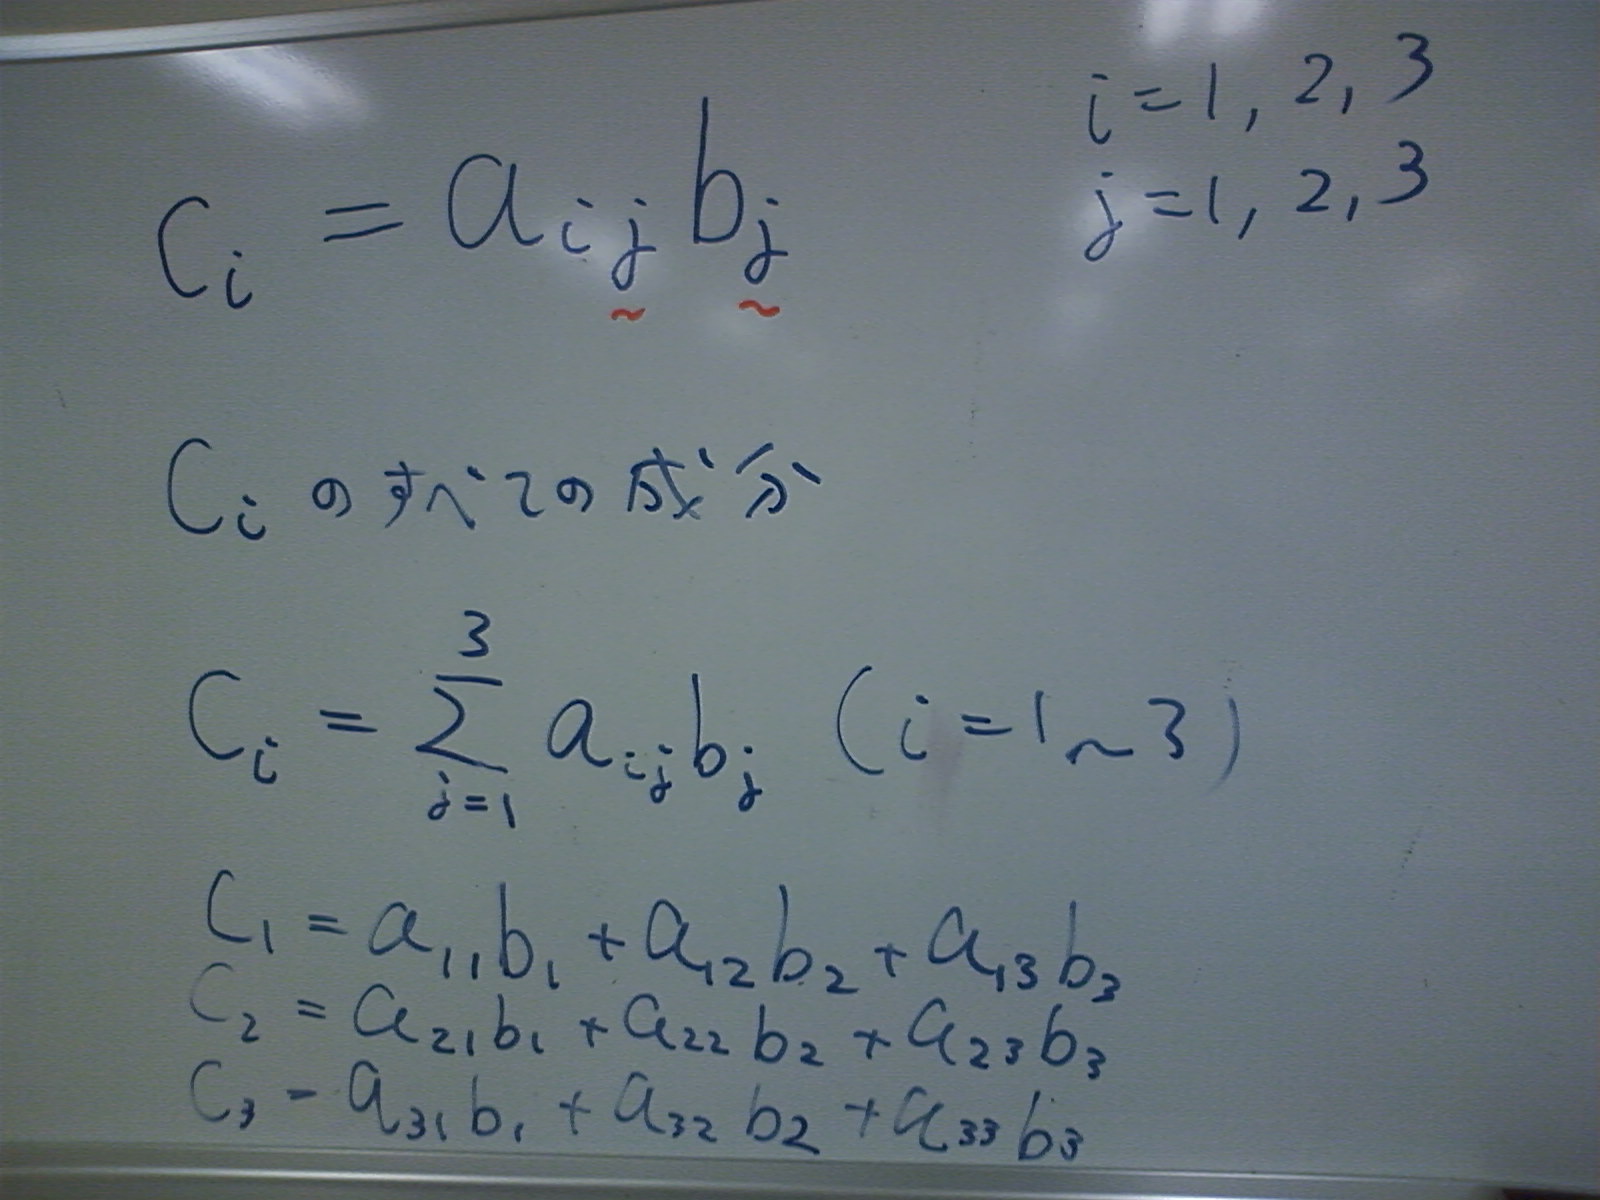 Ci = aij bj
i = 1, 2, 3
j = 1, 2, 3
Ciのすべての成分
Ci = Σ[j=1→3] aij bj (i = 1 ~ 3)
C1 = a11b1 + a12b2 + a13b3
C2 = a21b1 + a22b2 + a23b3
C3 - a31b1 + a32b2 + a33b3